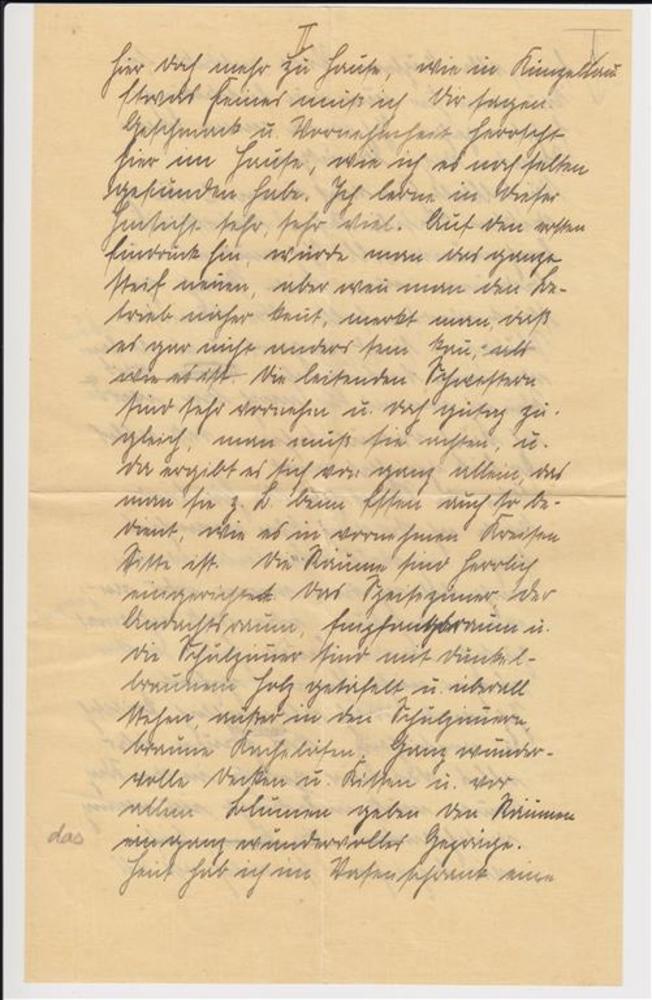 II
I
hier doch mehr zu Hause, wie in Künzelsau
Etwas feines muß ich Dir sagen.
Geschmack u. Vornehmheit herrscht
hier im Hause, wie ich es noch selten
gefunden habe. Ich lerne in dieser
Hinsicht sehr, sehr viel. Auf den ersten
Eindruck hin, würde man das ganze
steif nennen, aber wenn man den Be-
trieb näher kennt, merkt man, daß
es gar nicht anders sein kann, als
wie es ist. Die leitenden Schwestern
sind sehr vornehm u. doch gütig zu-
gleich, man muß sie achten, u.
da ergibt es sich von ganz allein, das
man sie z. B. beim Essen auch so be-
dient, wie es in vornehmen Kreisen
Sitte ist. Die Räume sind herrlich
eingerichtet. Das Speisezimmer, der
Andachtsraum, Empfangsraum u.
die Schulzimmer sind mit dunkel-
braunem Holz getäfelt u. überall
stehen, außer in den Schulzimmern,
braune Kachelöfen. Ganz wunder-
volle Decken u. Kissen u. vor
allem Blumen geben den Räumen
das
ein ganz wundervolles Gepräge.
Heut hab ich im Vasenschrank eine